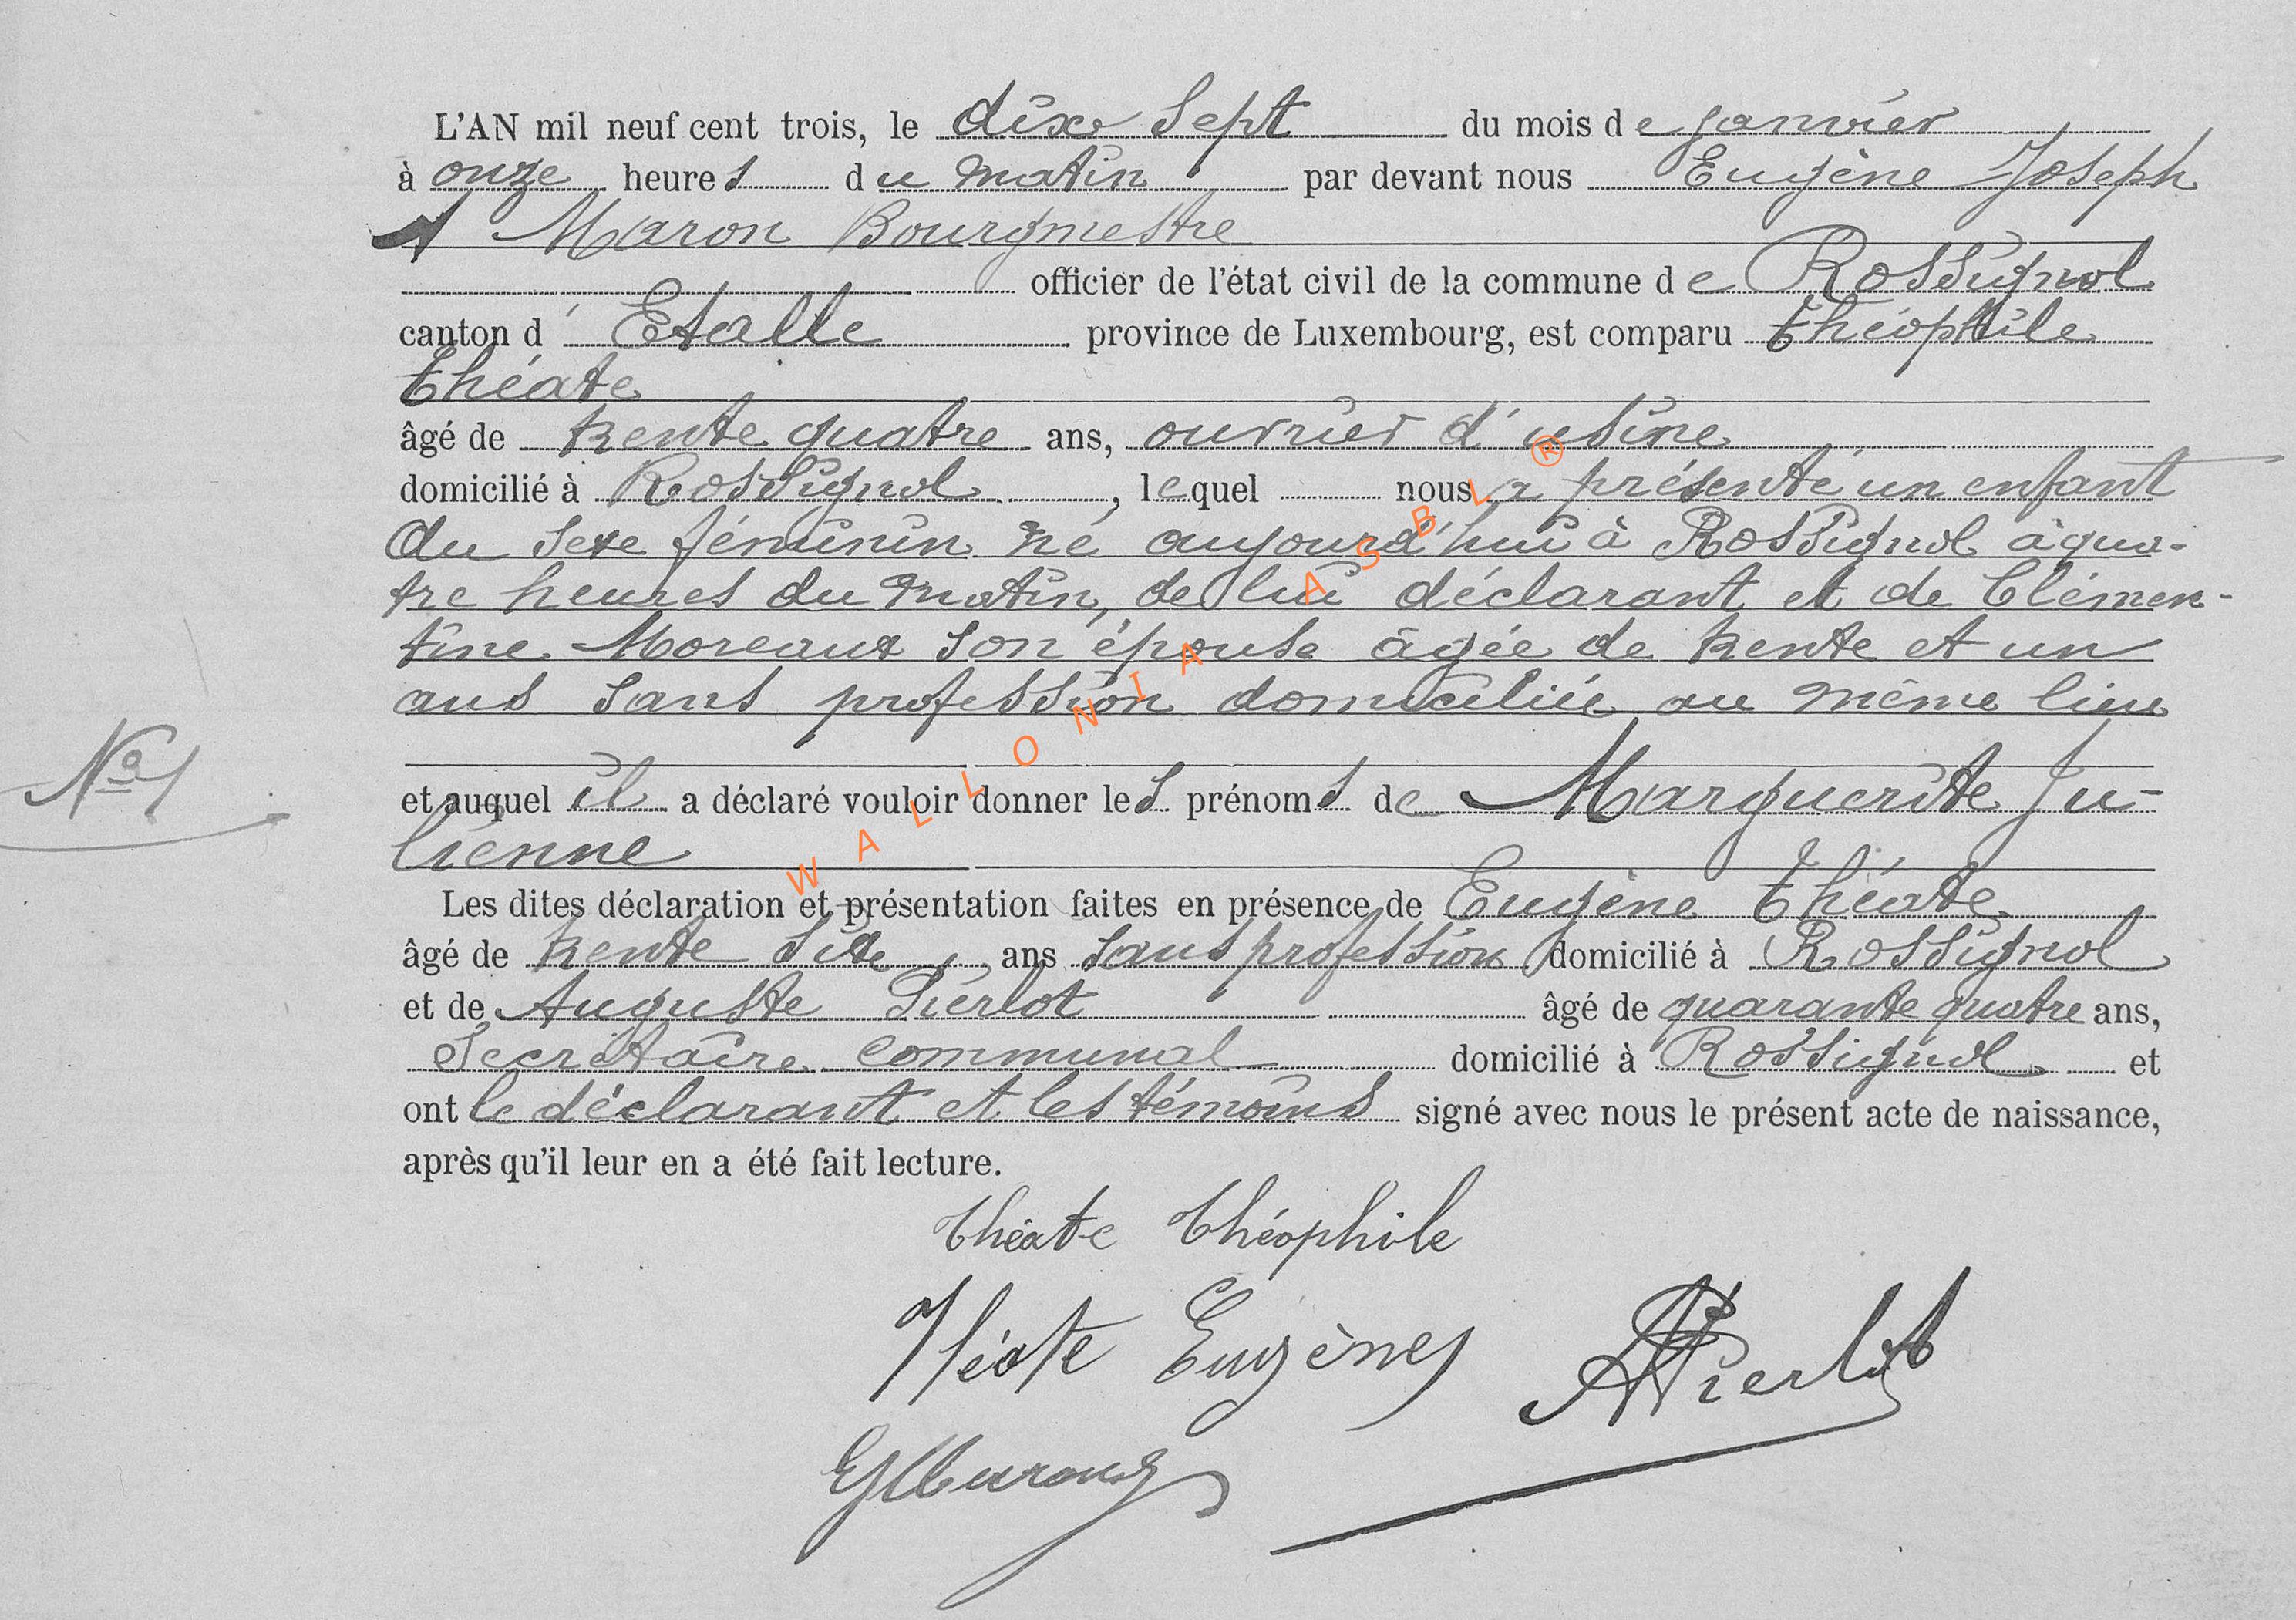 L'AN mil neuf cent trois, le dix sept du mois de janvier
à onze heures du matin par devant nous Eugène Joseph
Maron Bourgmestre
officier de l'état civil de la commune de Rossignol
canton d'Etalle province de Luxembourg, est comparu Théophile
Théate
âgé de trente quatre ans, ouvrier d'usine
domicilié à Rossignol, lequel nous a présenté un enfant
du sexe féminin né aujourd'hui à Rossignol à qua-
tre heures du matin, de lui déclarant et de Clémen-
tine Moreaux son épouse âgée de trente et un
ans sans profession domiciliée au même lieu
No 1
et auquel il a déclaré vouloir donner les prénoms de Marguerite Ju-
lienne
Les dites déclaration et présentation faites en présence de Eugène Théate
âgé de trente six ans sans profession domicilié à Rossignol
et de Auguste Pierlot âgé de quarante quatre ans,
Secrétaire communal domicilié à Rossignol et
ont le déclarant et les témoins signé avec nous le présent acte de naissance,
après qu'il leur en a été fait lecture.
Théate Théophile
Théate Eugène
APierlot
EJMaron
WALLONIA ASBL ®